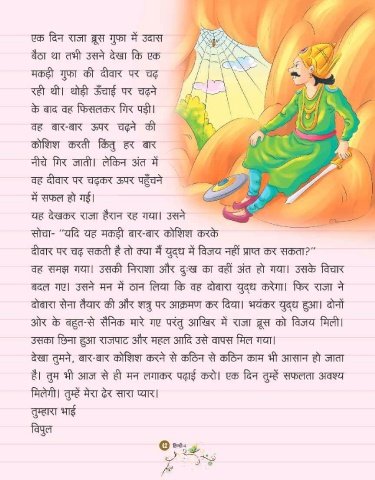 एक दिन राजा ब्रूस गुफा में उदास
बैठा था तभी उसने देखा कि एक
मकड़ी गुफा की दीवार पर चढ़
रही थी। थोड़ी ऊँचाई पर चढ़ने
के बाद वह फिसलकर गिर पड़ी।
वह बार-बार ऊपर चढ़ने की
कोशिश करती किंतु हर बार
नीचे गिर जाती। लेकिन अंत में
वह दीवार पर चढ़कर ऊपर पहुँचने
में सफल हो गई।
यह देखकर राजा हैरान रह गया। उसने
सोचा- "यदि यह मकड़ी बार-बार कोशिश करके
दीवार पर चढ़ सकती है तो क्या मैं युद्ध में विजय नहीं प्राप्त कर सकता?"
वह समझ गया। उसकी निराशा और दुःख का वहीं अंत हो गया। उसके विचार
बदल गए। उसने मन में ठान लिया कि वह दोबारा युद्ध करेगा। फिर राजा ने
दोबारा सेना तैयार की और शत्रु पर आक्रमण कर दिया। भयंकर युद्ध हुआ। दोनों
ओर के बहुत-से सैनिक मारे गए परंतु आखिर में राजा ब्रूस को विजय मिली।
उसका छिना हुआ राजपाट और महल आदि उसे वापस मिल गया।
देखा तुमने, बार-बार कोशिश करने से कठिन से कठिन काम भी आसान हो जाता
है। तुम भी आज से ही मन लगाकर पढ़ाई करो। एक दिन तुम्हें सफलता अवश्य
मिलेगी। तुम्हें मेरा ढेर सारा प्यार।
तुम्हारा भाई
विपुल